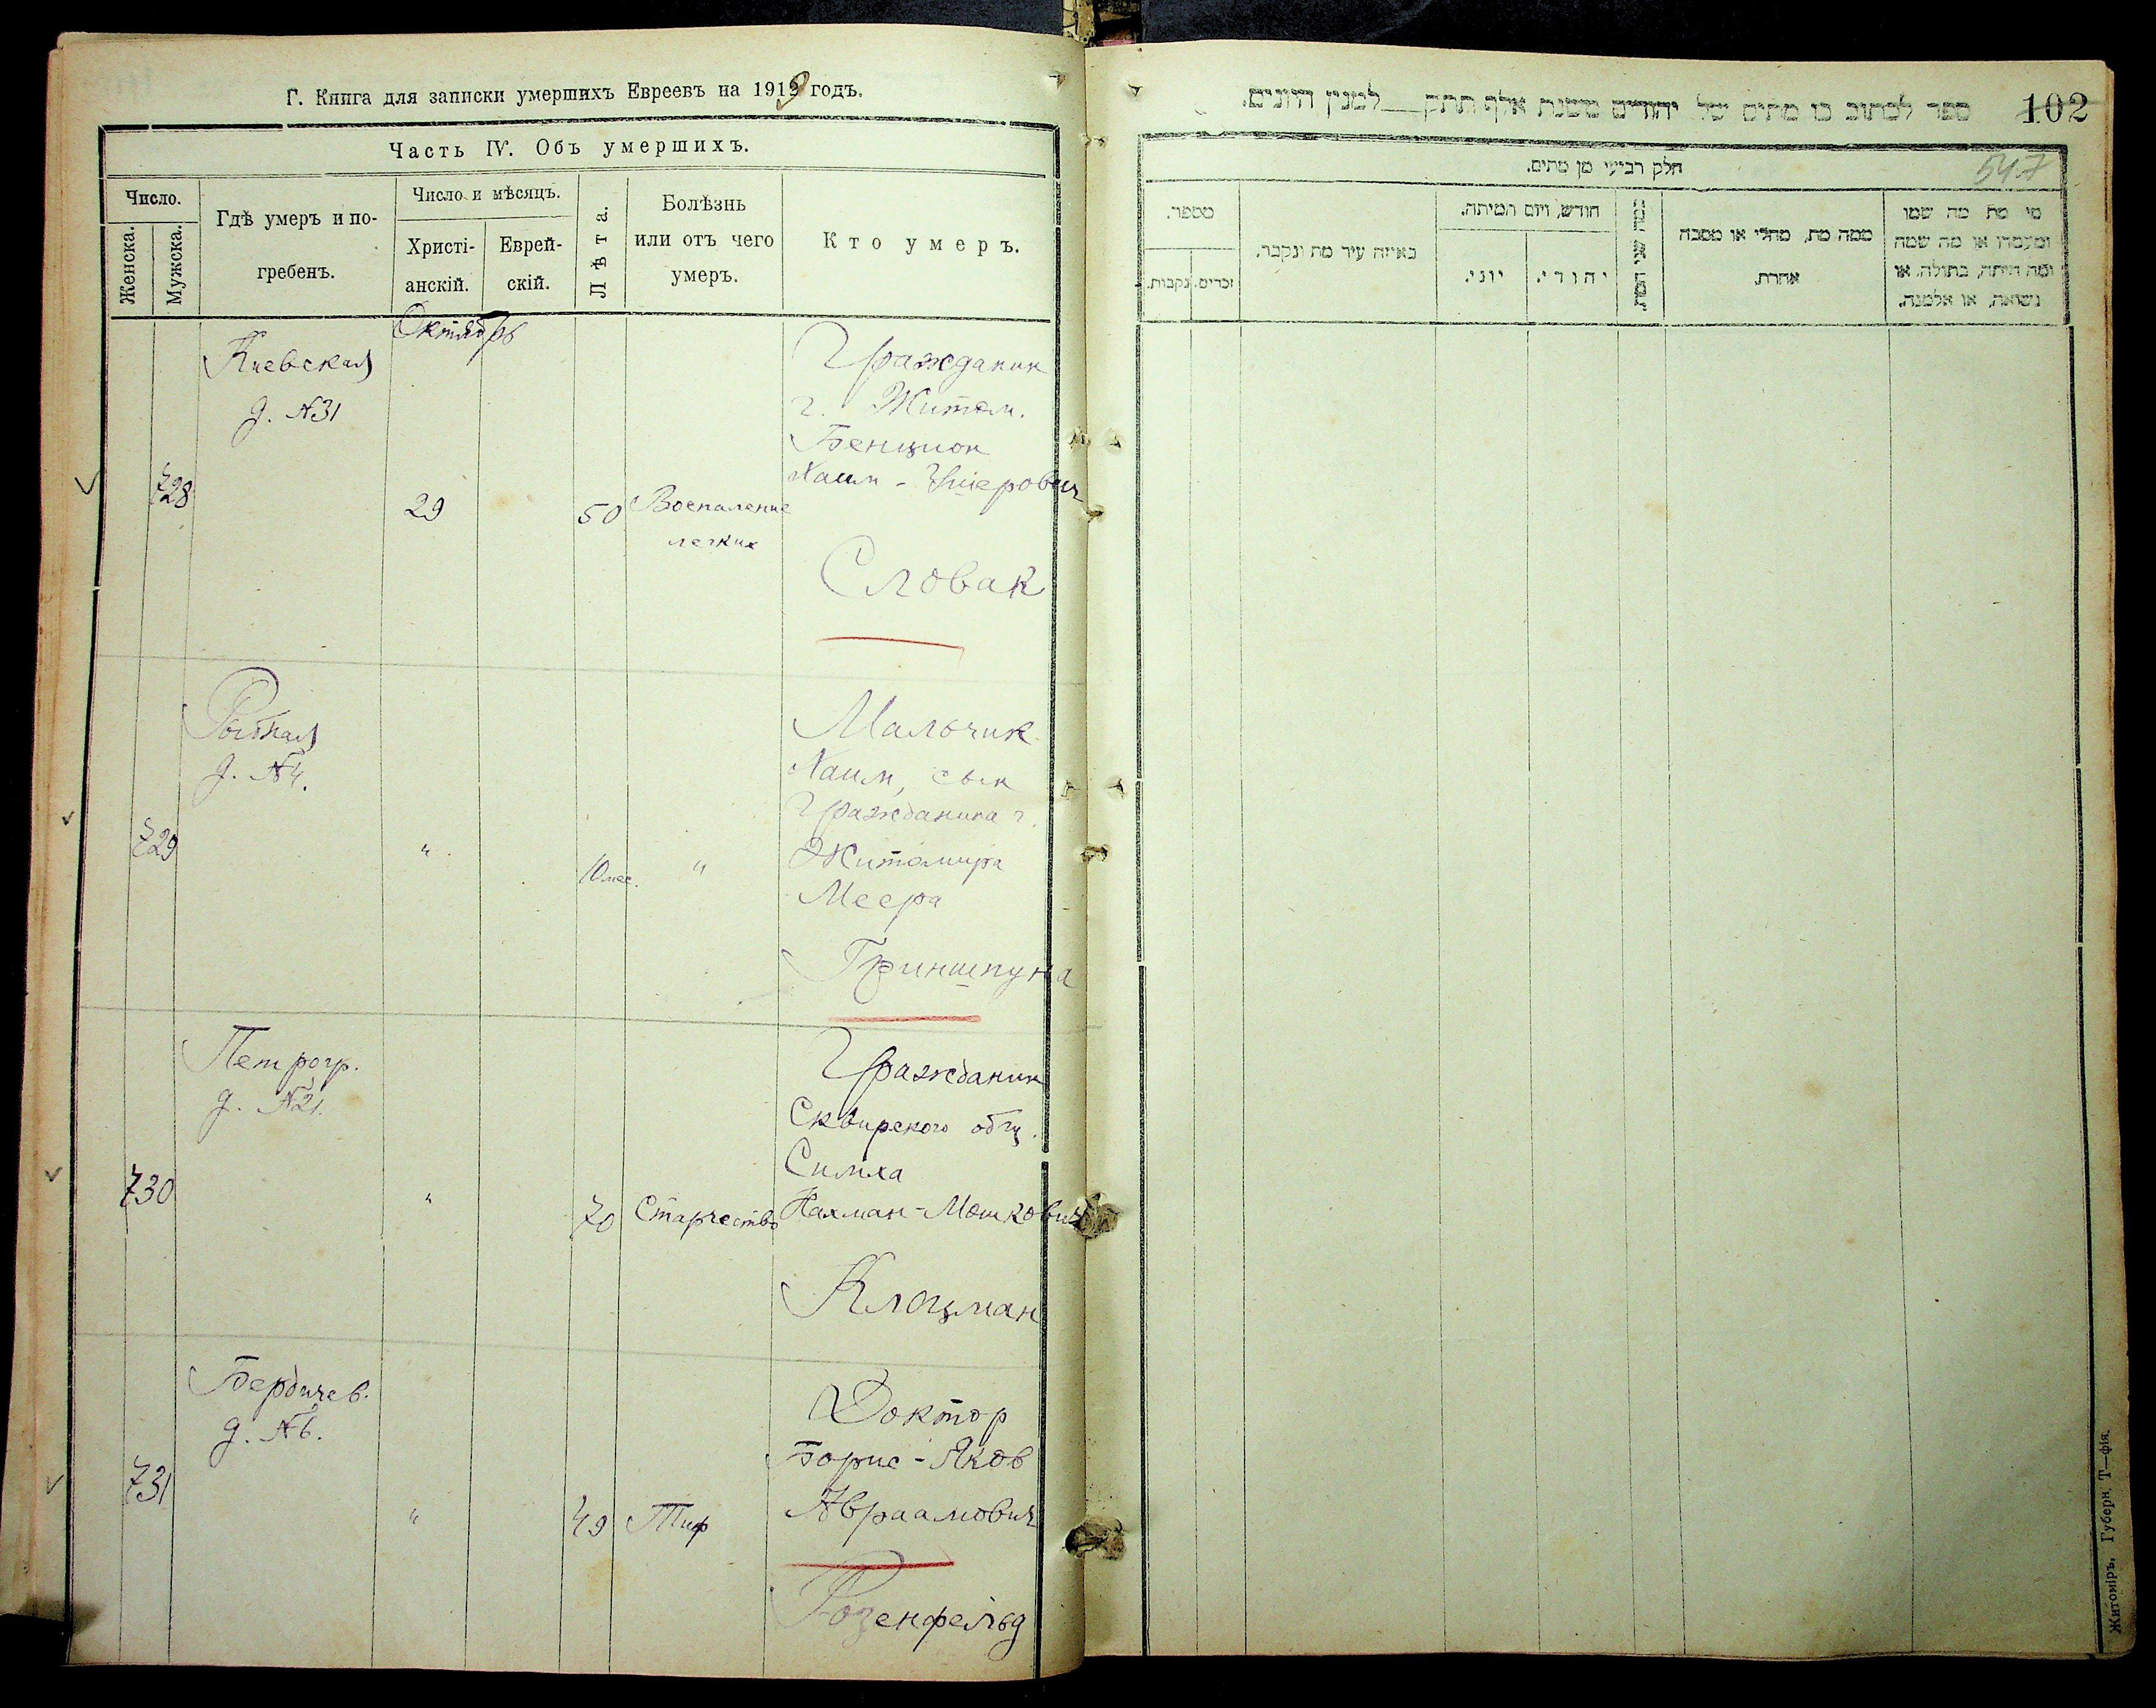 Г. Книга для записки умершихъ Евреевъ на 1919 годъ.
Часть IV. Объ умершихъ.
Число.
Женска.
Мужска.
Гдѣ умеръ и по-
гребенъ.
Число и мѣсяцъ.
Христі-
анскій.
Еврей-
скій.
Лѣта.
Болѣзнь
или отъ чего
умеръ.
Кто умеръ.
Октябрь
728
Киевская
д. №31
29
50
Воспаление
легких
Гражданин
г. Житом.
Бенцион
Хаим-Ушерович
Словак
729
Рыбная
д. №4.
"
10 мес.
"
Мальчик
Хаим, сын
Гражданина г.
Житомира
Меера
Гриншпуна
730
Петрогр.
д. №21.
"
70
Старчество
Гражданин
Сквирского общ.
Симха
Нахман-Мошкович
Клоцман
731
Бердичев.
д. №6.
"
49
Тиф
Доктор
Борис-Яков
Авраамович
Розенфельд
102
ספר לכתוב בו מתים של יהודים משנת אלף תתק— למנין היונים.
547
חלק רביעי מן מתים.
מספר.
זכרים.
נקבות.
באיזה עיר מת ונקבר.
חודש, ויום המיתה.
יוני.
יהודי.
כמה שני המת.
ממה מת, מחלי או מסבה
אחרת.
מי מת מה שמו
ומעמדו או מה שמה
ומה היתה, בתולה, או
נשואה, או אלמנה.
Житоміръ, Губерн. Т—фія.